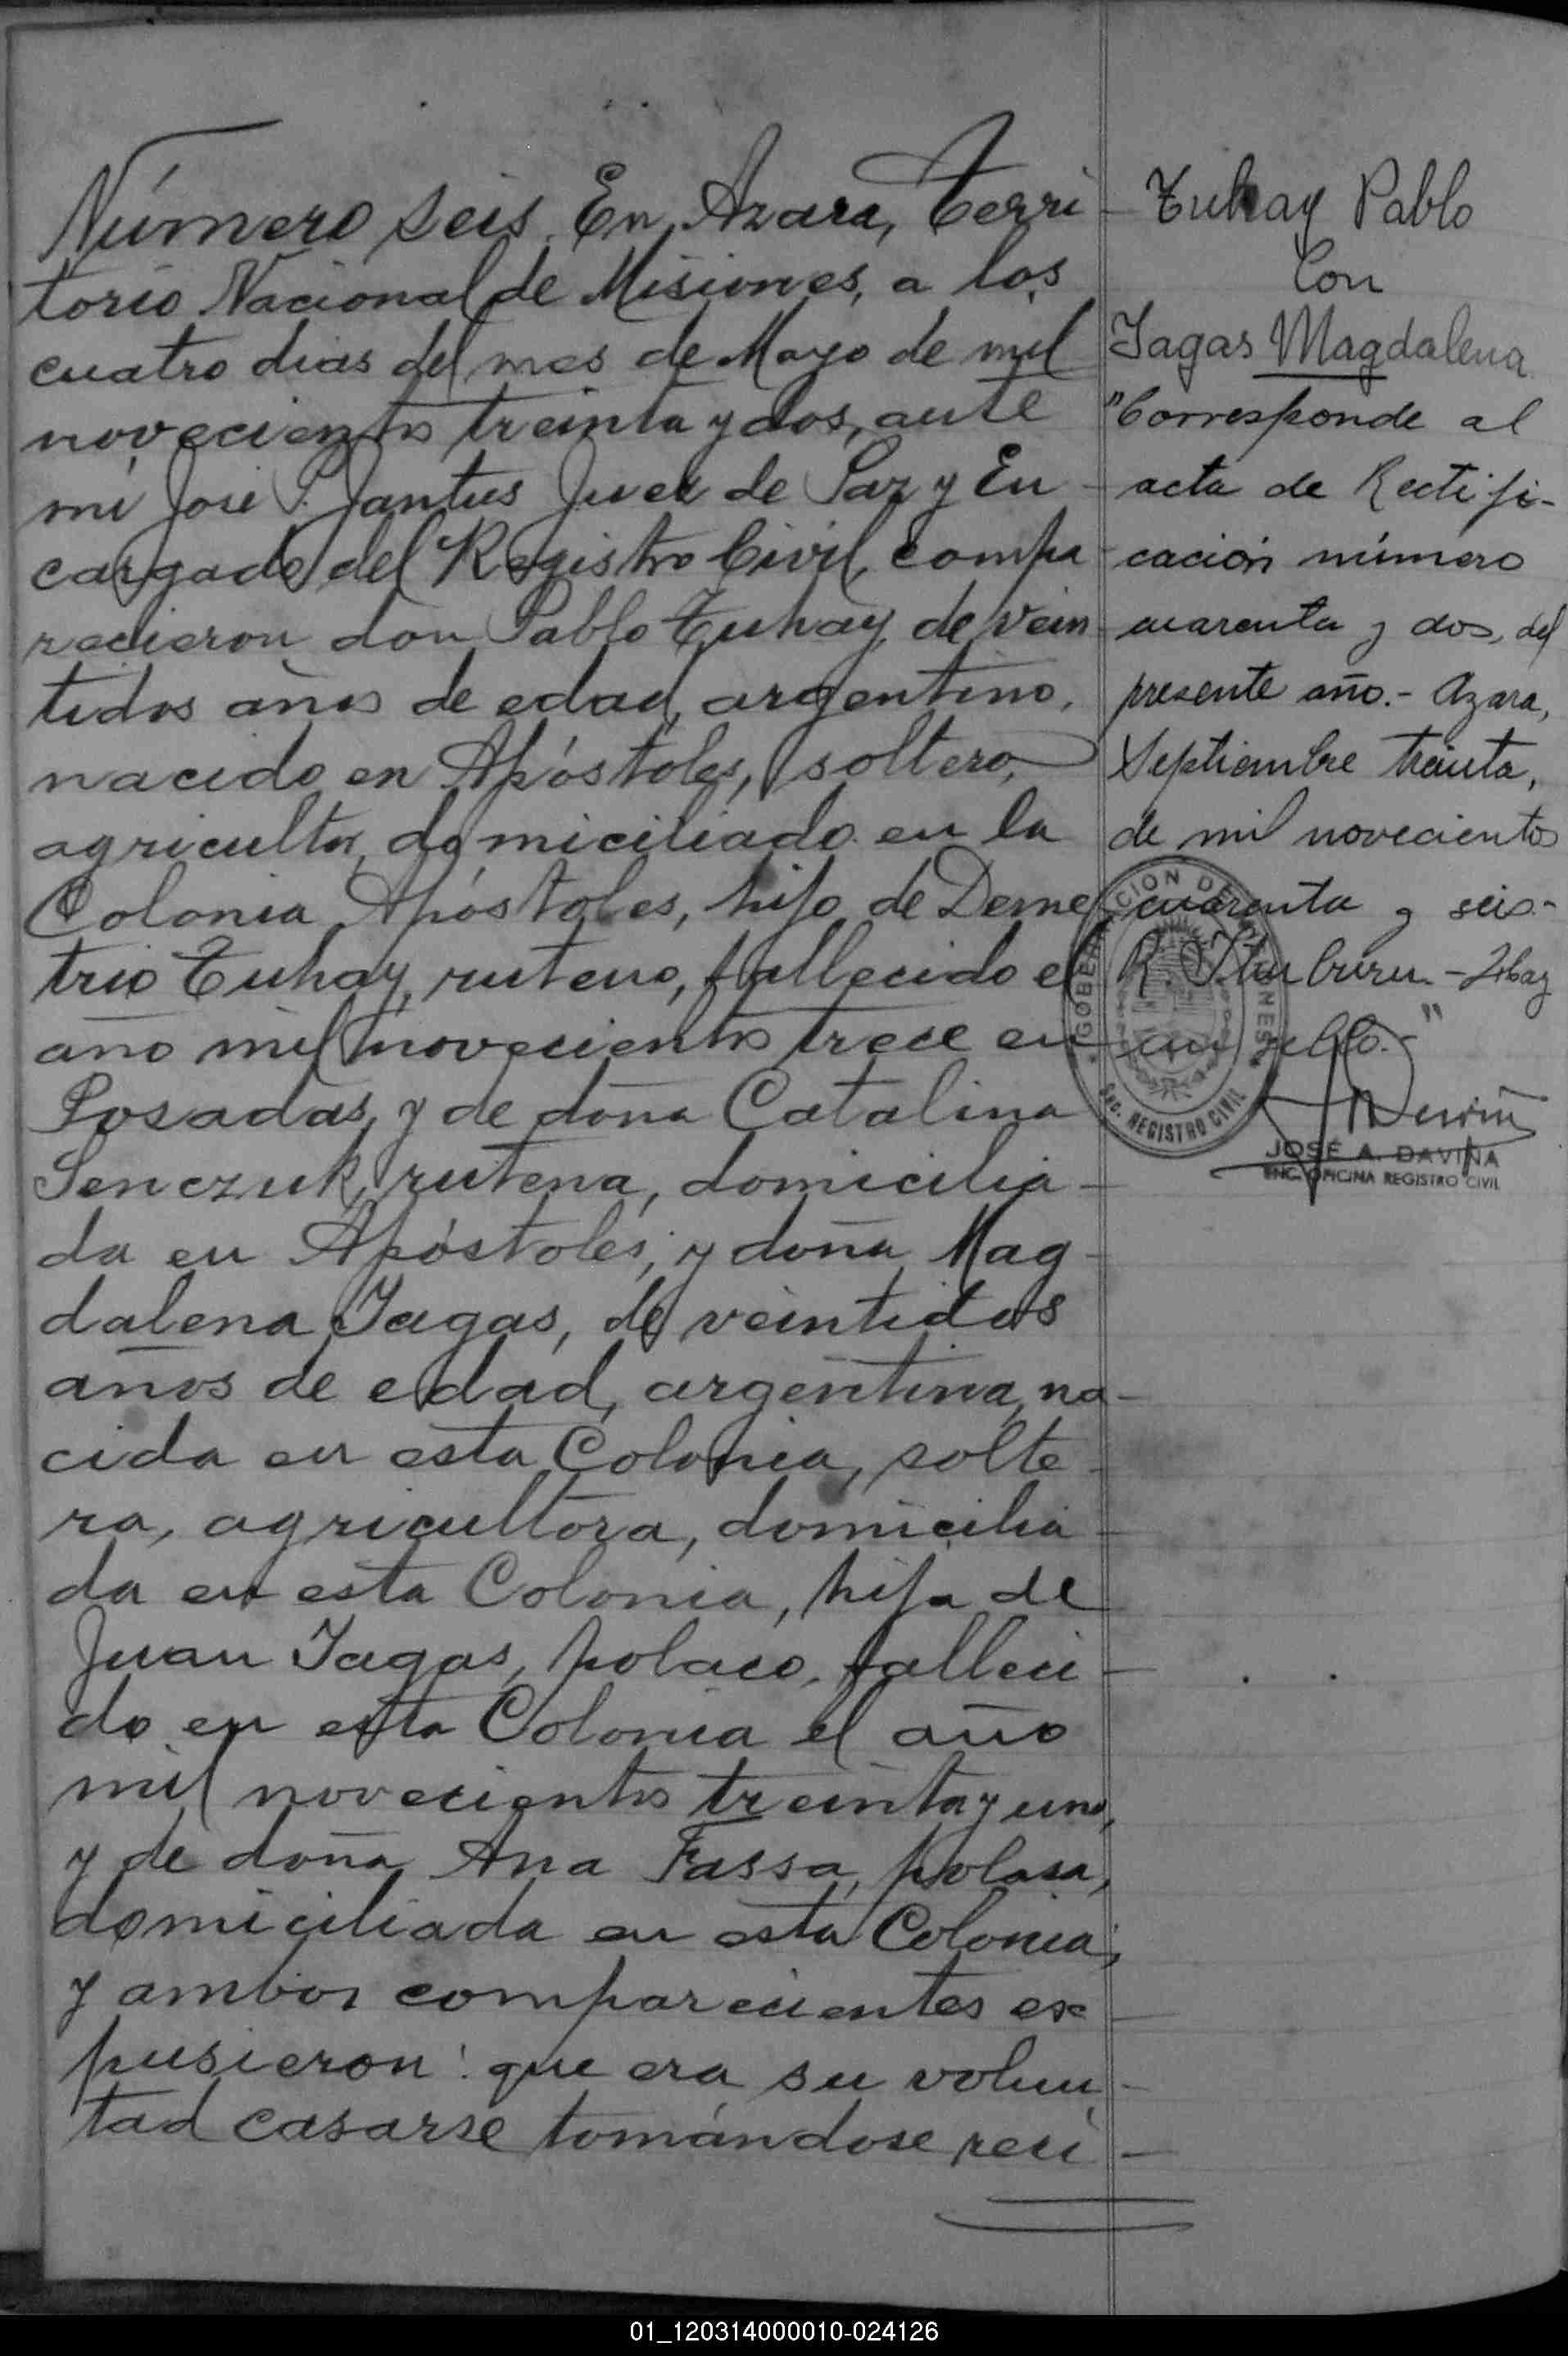 Número seis. En Azara, Terri-
torio Nacional de Misiones, a los
cuatro dias del mes de Mayo de mil
novecientos treinta y dos, ante
mi José P. Jantus Juez de Paz y En-
cargado del Registro Civil, compa-
recieron don Pablo Tuhay, de vein-
tidos años de edad, argentino,
nacido en Apóstoles, soltero,
agricultor, domiciliado en la
Colonia Apóstoles, hijo de Deme-
trio Tuhay, ruteno, fallecido el
año mil novecientos trece en
Posadas, y de doña Catalina
Senczuk, rutena, domicilia-
da en Apóstoles; y doña Mag-
dalena Jagas, de veintidos
años de edad, argentina, na-
cida en esta Colonia, solte-
ra, agricultora, domicilia-
da en esta Colonia, hija de
Juan Jagas, polaco, falleci-
do en esta Colonia el año
mil novecientos treinta y uno,
y de doña Ana Fassa, polaca,
domiciliada en esta Colonia;
y ambos comparecientes ex-
pusieron: que era su volun-
tad casarse tomándose reci-
Tuhay Pablo
Con
Jagas Magdalena
"Corresponde al
acta de Rectifi-
cación número
cuarenta y dos, del
presente año.- Azara,
Septiembre treinta,
de mil novecientos
cuarenta y seis.-
R. - Hay
un sello.-"
GOBERNACION DE MISIONES
SEC. REGISTRO CIVIL
JOSÉ A. DAVIÑA
ENC. OFICINA REGISTRO CIVIL
01_120314000010-024126